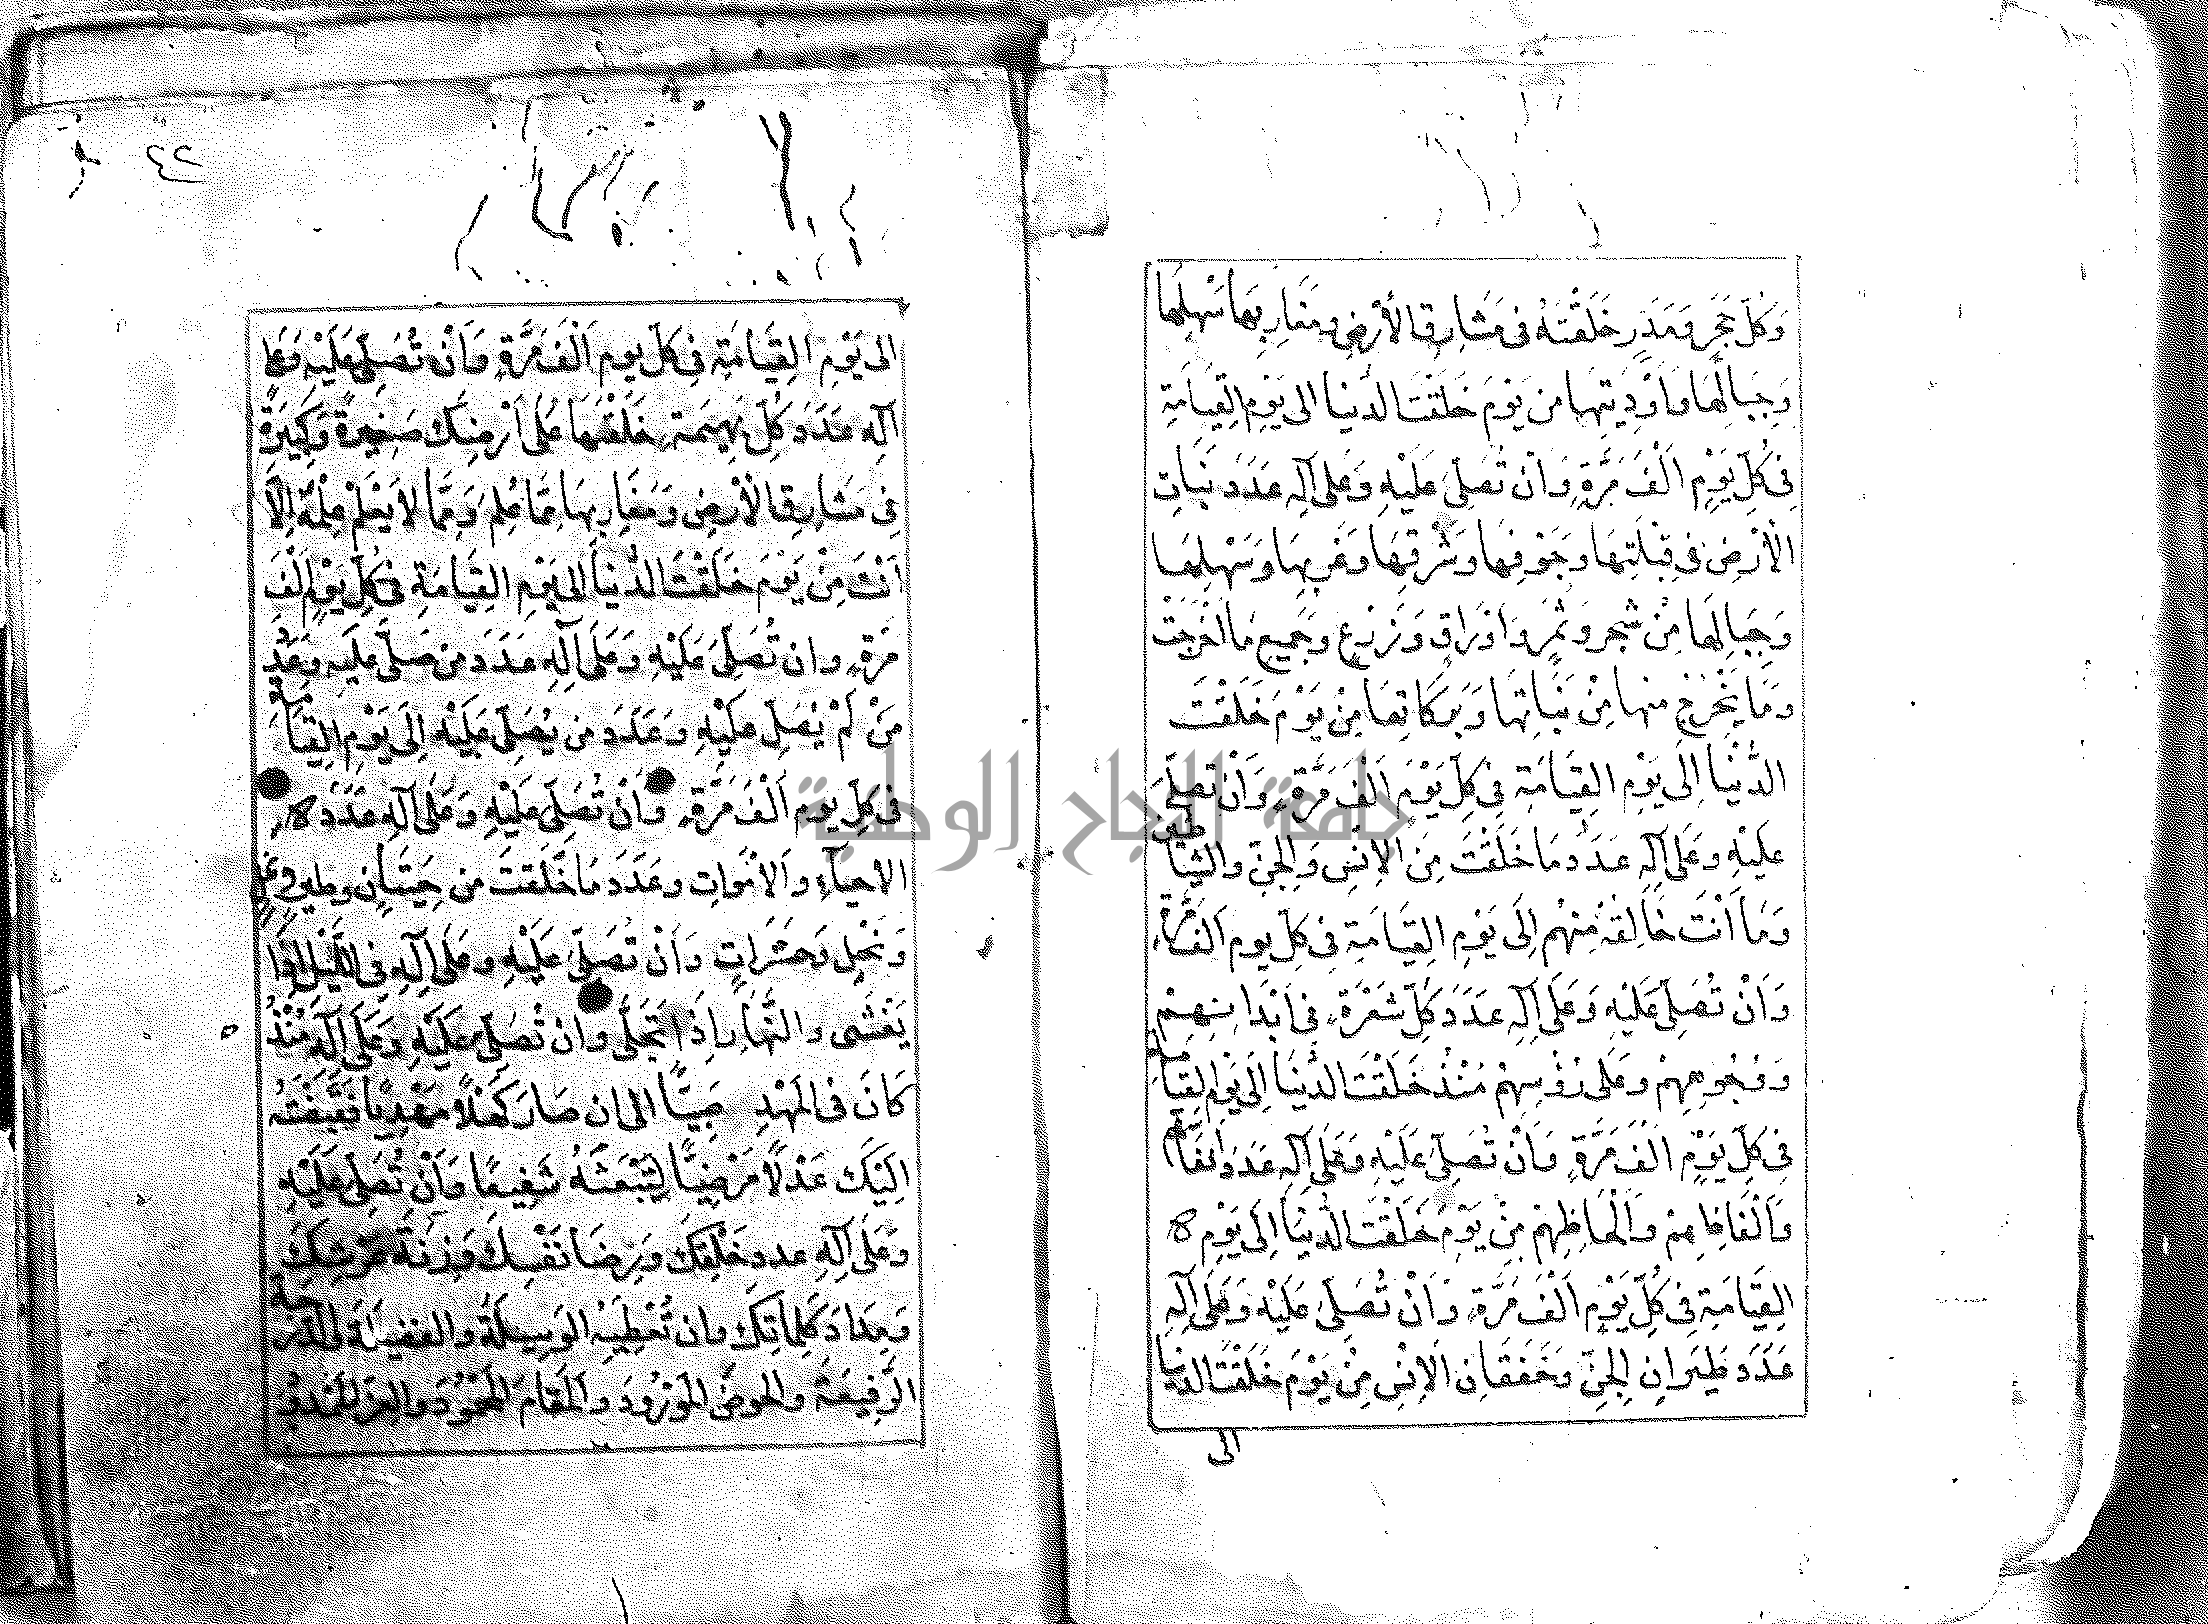 وَكُلِّ حَجَرٍ وَمَدَرٍ خَلَقْتَهُ فِى مَشَارِقِ الْأَرْضِ وَمَغَارِبِهَا سَهْلِهَا
وَجِبَالِهَا وَاَوْدِيَتِهَا مِن يَوْمَ خَلَقْتَ الدُّنْيَا اِلى يَوْمِ الْقِيَامَةِ
فِى كُلِّ يَوْمٍ اَلْفَ مَرَّةٍ وَاَنْ تُصَلِّىَ عَلَيْهِ وَعَلى آلِهِ عَدَدَ نَبَاتِ
الْأَرْضِ فِى قِبْلَتِهَا وَجَوْفِهَا وَشَرْقِهَا وَغَرْبِهَا وَسَهْلِهَا
وَجِبَالِهَا مِنْ شَجَرٍ وَثَمَرٍ وَاَوْرَاقٍ وَزَرْعٍ وَجَمِيعِ مَا اَخْرَجَتْ
وَمَا يَخْرُجُ مِنْهَا مِنْ نَبَاتِهَا وَبَرَكَاتِهَا مِنْ يَوْمَ خَلَقْتَ
الدُّنْيَا اِلَى يَوْمِ الْقِيَامَةِ فِى كُلِّ يَوْمٍ اَلْفَ مَرَّةٍ وَاَنْ تُصَلِّىَ
عَلَيْهِ وَعَلى آلِهِ عَدَدَ مَا خَلَقْتَ مِنَ الْاِنْسِ وَالْجِنِّ وَالشَّيَاطِينِ
وَمَا اَنْتَ خَالِقُهُ مِنْهُمْ اِلَى يَوْمِ الْقِيَامَةِ فِى كُلِّ يَوْمٍ اَلْفَ مَرَّةٍ
وَاَنْ تُصَلِّىَ عَلَيْهِ وَعَلَى آلِهِ عَدَدَ كُلِّ شَعْرَةٍ فِى اَبْدَانِهِمْ
وَوُجُوهِهِمْ وَعَلى رُؤُسِهِمْ مُنْذُ خَلَقْتَ الدُّنْيَا اِلَى يَوْمِ الْقِيَامَةِ
فِى كُلِّ يَوْمٍ اَلْفَ مَرَّةٍ وَاَنْ تُصَلِّىَ عَلَيْهِ وَعَلَى آلِهِ عَدَدَ اَنْفَاسِهِمْ
وَاَلْفَاظِهِمْ وَاَلْحَاظِهِمْ مِنْ يَوْمَ خَلَقْتَ الدُّنْيَا اِلَى يَوْمِ
الْقِيَامَةِ فِى كُلِّ يَوْمٍ اَلْفَ مَرَّةٍ وَاَنْ تُصَلِّىَ عَلَيْهِ وَعَلى آلِهِ
عَدَدَ طَيَرَانِ الْجِنِّ وَخَفَقَانِ الْاِنْسِ مِنْ يَوْمَ خَلَقْتَ الدُّنْيَا
الى
٤٢
الى يَوْمِ الْقِيَامَةِ فِى كُلِّ يومٍ اَلْفَ مَرَّةٍ وَاَنْ تُصَلِّىَ عَلَيْهِ وَعَلى
آلِهِ عَدَدَ كُلِّ بَهِيمَةٍ خَلَقْتَهَا عَلَى اَرْضِكَ صَغِيرَةً وَكَبِيرَةً
فِى مَشَارِقِ الْأَرْضِ وَمَغَارِبِهَا مِمَّا عُلِمَ وَمِمَّا لَا يَعْلَمُ عِلْمَهُ اِلَّا
اَنْتَ مِنْ يَوْمَ خَلَقْتَ الدُّنْيَا اِلى يَوْمِ الْقِيَامَةِ فِى كُلِّ يَوْمٍ اَلْفَ
مَرَّةٍ وان تُصَلِّىَ عَلَيْهِ وَعَلَى آلِهِ عَدَدَ مَن صَلَّى عَلَيْهِ وَعَدَدَ
مَنْ لَمْ يُصَلِّ عَلَيْهِ وَعَدَدَ مَن يُصَلِّى عَلَيْهِ اِلَى يَوْمِ الْقِيَامَةِ
فِى كُلِّ يومٍ اَلْفَ مَرَّةٍ وَاَنْ تُصَلِّىَ عَلَيْهِ وَعَلَى آلِهِ عَدَدَ
الاحيآءِ وَالْاَمْوَاتِ وَعَدَدَ مَا خَلَقْتَ مِن حِيتَانٍ وطيرٍ ونملٍ
وَنَحْلٍ وَحَشَرَاتٍ وَاَنْ تُصَلِّىَ عَلَيْهِ وَعَلَى آلِهِ فِى اللَّيْلِ اِذَا
يَغْشَى وَالنَّهَارِ اِذَا تَجَلَّى وان تُصَلِّىَ عَلَيْهِ وَعَلَى آلِهِ مُنْذُ
كَانَ فِى الْمَهْدِ صَبِيًّا الى ان صَارَ كَهْلًا مَهْدِيًّا فَقَبَضْتَهُ
اِلَيْكَ عَدْلًا مَرْضِيًّا لِتَبْعَثَهُ شَفِيعًا وَاَنْ تُصَلِّىَ عَلَيْهِ
وَعَلَى آلِهِ عدد خَلْقِكَ وَرِضَا نَفْسِكَ وَزِنَةَ عَرْشِكَ
وَمِدَادَ كَلِمَاتِكَ وان تُعْطِيَهُ الْوَسِيلَةَ وَالْفَضِيلَةَ وَالدَّرَجَةَ
الرَّفِيعَةَ وَالْحَوْضَ الْمَوْرُودَ وَالْمَقَامَ الْمَحْمُودَ وَالْعِزَّ الْمَمْدُودَ
جامعة النجاح الوطنية